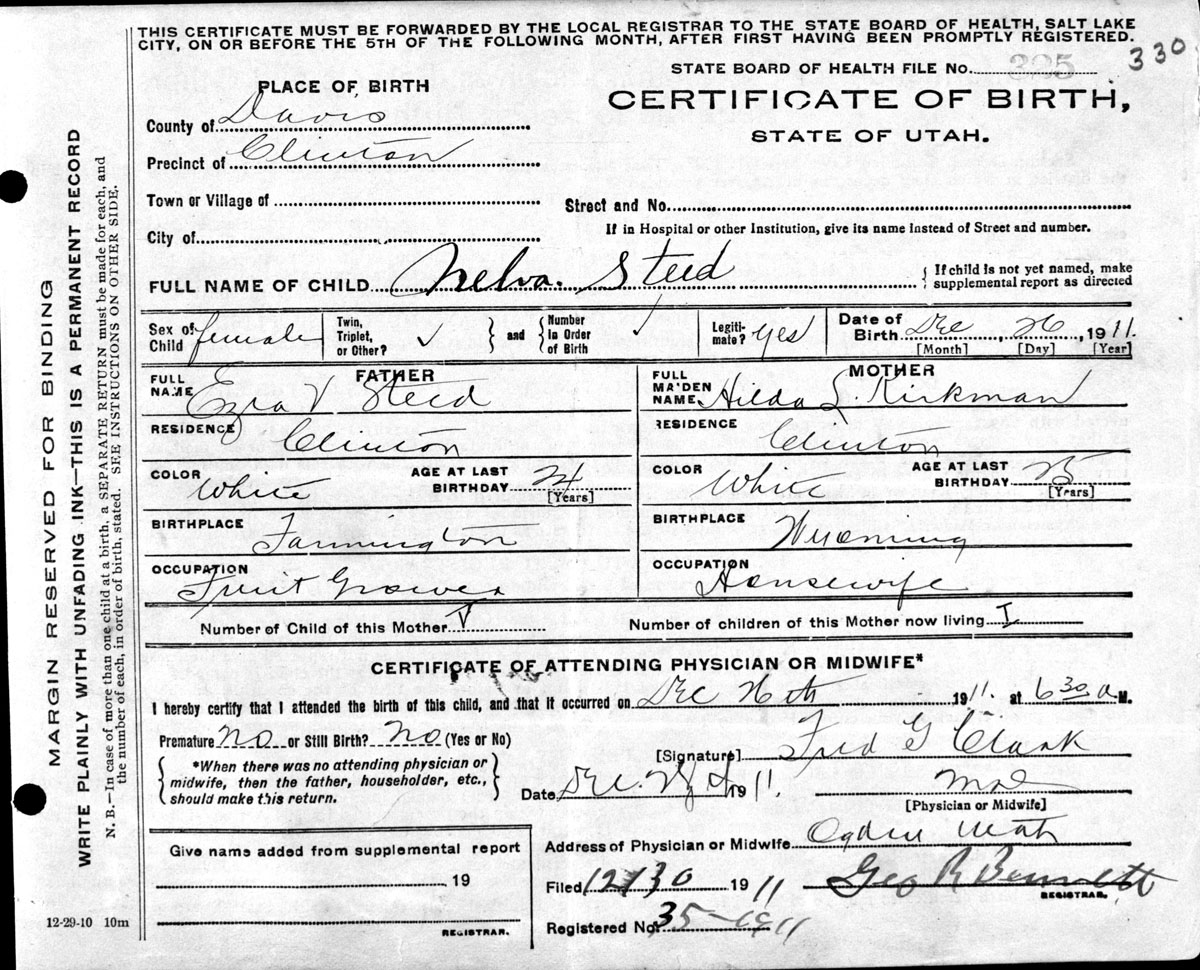 THIS CERTIFICATE MUST BE FORWARDED BY THE LOCAL REGISTRAR TO THE STATE BOARD OF HEALTH, SALT LAKE
CITY, ON OR BEFORE THE 5TH OF THE FOLLOWING MONTH, AFTER FIRST HAVING BEEN PROMPTLY REGISTERED.
330
STATE BOARD OF HEALTH FILE No. 325
PLACE OF BIRTH
CERTIFICATE OF BIRTH,
STATE OF UTAH.
County of Davis
Precinct of Clinton
Town or Village of
Street and No.
City of
If in Hospital or other Institution, give its name instead of Street and number.
FULL NAME OF CHILD Nelva. Steed
{ If child is not yet named, make
supplemental report as directed
Sex of Child female
Twin, Triplet, or Other? ✓ } and { Number In Order of Birth ✓
Legitimate? Yes
Date of Birth Dec 26, 1911.
[Month] [Day] [Year]
FATHER
FULL NAME Ezra V Steed
RESIDENCE Clinton
COLOR White
AGE AT LAST BIRTHDAY 24
[Years]
BIRTHPLACE Farmington
OCCUPATION Fruit Grower
MOTHER
FULL MAIDEN NAME Hilda L. Kirkman
RESIDENCE Clinton
COLOR White
AGE AT LAST BIRTHDAY 25
[Years]
BIRTHPLACE Wyoming
OCCUPATION Housewife
Number of Child of this Mother
Number of children of this Mother now living I
CERTIFICATE OF ATTENDING PHYSICIAN OR MIDWIFE*
I hereby certify that I attended the birth of this child, and that it occurred on Dec 1911. at 6 30 a M.
Premature No or Still Birth? No (Yes or No)
[Signature] Fred G Clark
{ *When there was no attending physician or
midwife, then the father, householder, etc.,
should make this return. }
Date Dec. 1911.
[Physician or Midwife]
Address of Physician or Midwife Ogden Utah
Give name added from supplemental report
19
REGISTRAR.
Filed 12/30 1911
Geo R Bennett
REGISTRAR.
Registered No. 35-1911
12-29-10 10m
MARGIN RESERVED FOR BINDING
WRITE PLAINLY WITH UNFADING INK—THIS IS A PERMANENT RECORD
N. B.—In case of more than one child at a birth, a SEPARATE RETURN must be made for each, and
the number of each, in order of birth, stated. SEE INSTRUCTIONS ON OTHER SIDE.